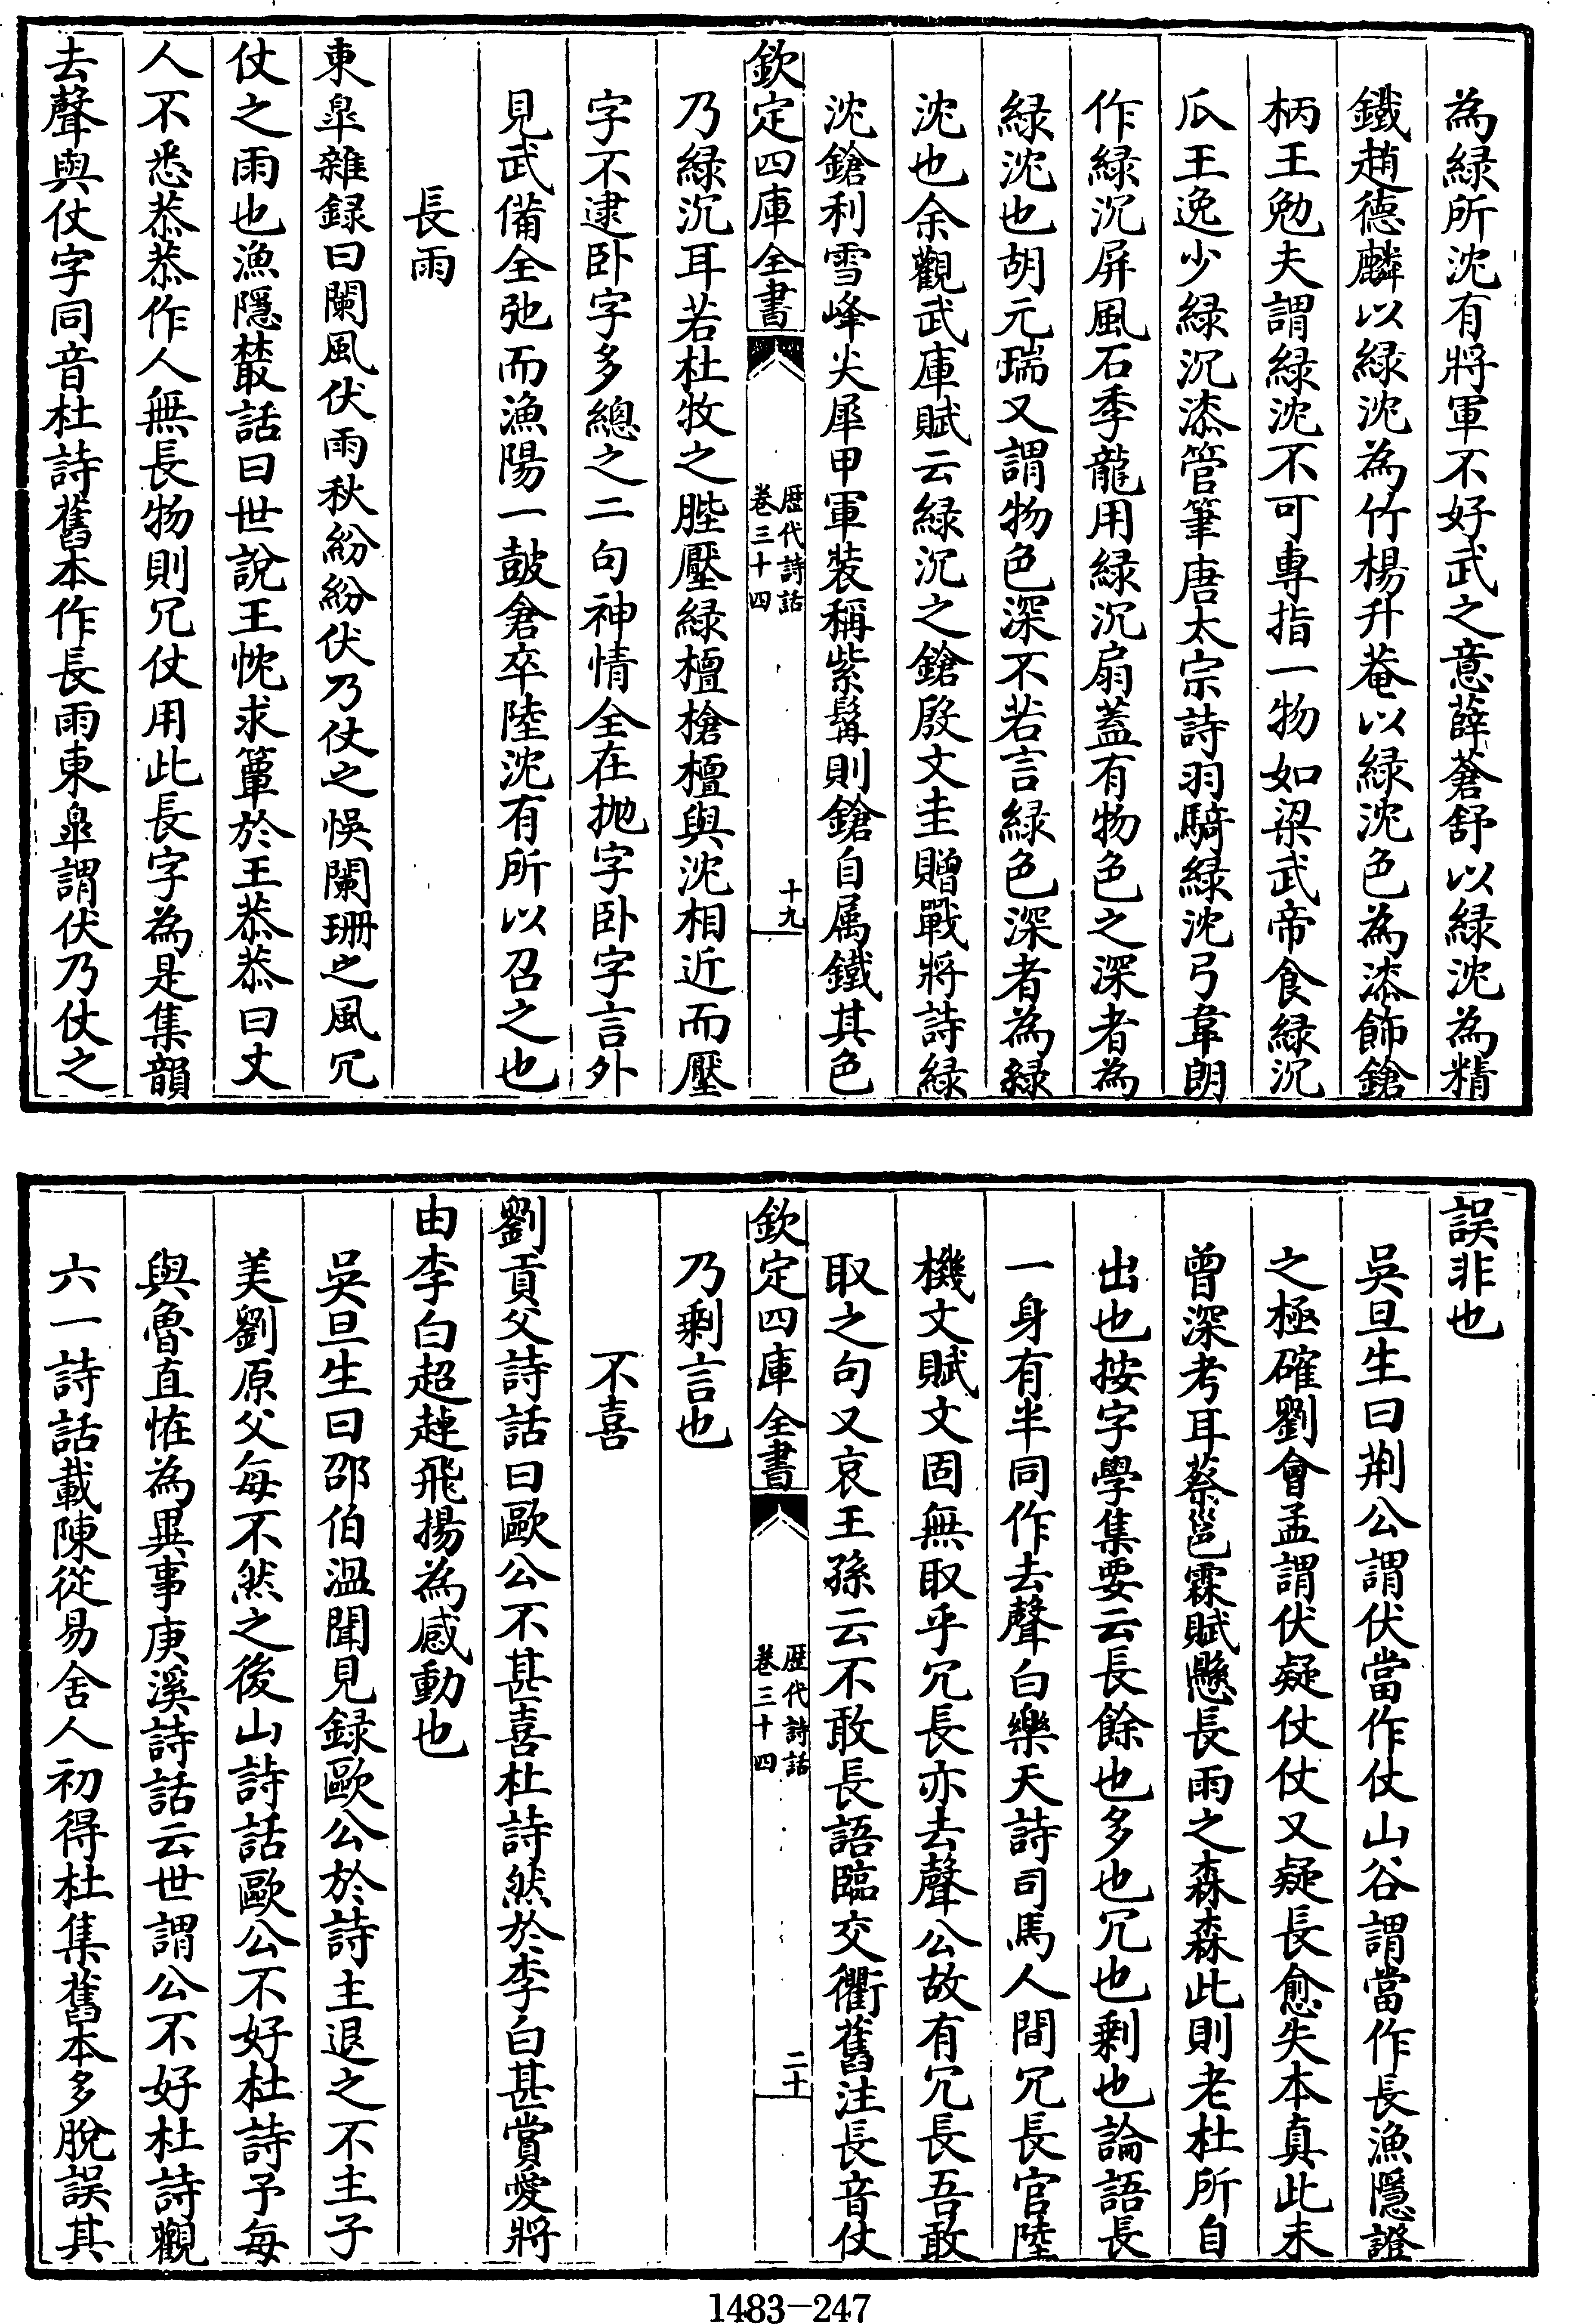 為緑所沈有將軍不好武之意薛蒼舒以緑沈為精
鐵趙德麟以緑沈為竹楊升菴以緑沈色為漆飾鎗
柄王勉夫謂緑沈不可專指一物如梁武帝食緑沉
瓜王逸少緑沉漆管筆唐太宗詩羽騎緑沈弓韋朗
作緑沉屏風石季龍用緑沉扇蓋有物色之深者為
緑沈也胡元瑞又謂物色深不若言緑色深者為緑
沈也余觀武庫賦云緑沉之鎗殷文圭贈戰將詩緑
沈鎗利雪峰尖犀甲軍裝稱紫髯則鎗自属鐵其色
欽定四庫全書
歴代詩話
卷三十四
十九
乃緑沉耳若杜牧之脞壓緑檀槍檀與沈相近而壓
字不逮卧字多總之二句神情全在拋字卧字言外
見武備全弛而漁陽一鼓倉卒陸沈有所以召之也
長雨
東臯雜録曰闌風伏雨秋紛紛伏乃仗之悞闌珊之風冗
仗之雨也漁隱叢話曰世說王忱求簟於王恭恭曰丈
人不悉恭恭作人無長物則冗仗用此長字為是集韻
去聲與仗字同音杜詩舊本作長雨東臯謂伏乃仗之
誤非也
吳旦生曰荆公謂伏當作仗山谷謂當作長漁隱證
之極確劉會孟謂伏疑仗仗又疑長愈失本真此未
曾深考耳蔡邕霖賦懸長雨之森森此則老杜所自
出也按字學集要云長餘也多也冗也剩也論語長
一身有半同作去聲白樂天詩司馬人間冗長官陸
機文賦文固無取乎冗長亦去聲公故有冗長吾敢
取之句又哀王孫云不敢長語臨交衢舊注長音仗
欽定四庫全書
歴代詩話
卷三十四
二十
乃剩言也
不喜
劉貢父詩話曰歐公不甚喜杜詩然於李白甚賞愛將
由李白超趠飛揚為感動也
吳旦生曰邵伯温聞見録歐公於詩主退之不主子
美劉原父每不然之後山詩話歐公不好杜詩予每
與魯直恠為異事庚溪詩話云世謂公不好杜詩觀
六一詩話載陳從易舍人初得杜集舊本多脫誤其
1483-247